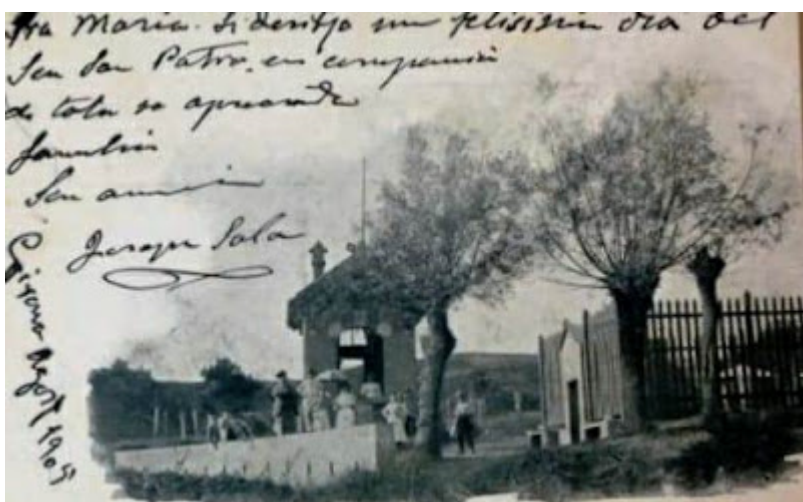 Sra Maria. Li desitjo un felissim dia del
Seu San Patró, en companyia
de tota sa apreciada
familia
Seu amich
Josep Sala
Girona Agost 1905